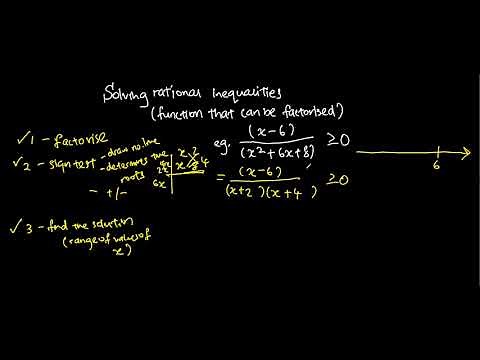 Solving rational inequalities
(function that can be factorised)
✓ 1 - factorise
✓ 2 - sign test - draw no. line
- determine the roots
- +/-
x 2
x 4
6x
eg. (x-6) / (x²+6x+8) ≥0
= (x-6) / (x+2)(x+4) ≥0
6
✓ 3 - find the solution
(range of values of
x)